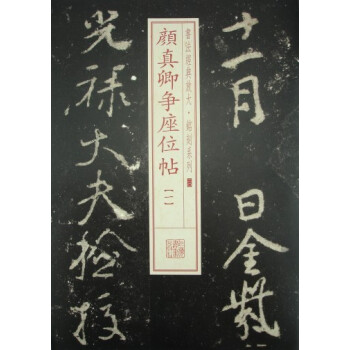 十一月 日金紫
書法經典放大·銘刻系列
顏真卿爭座位帖〔一〕
光祿大夫檢校